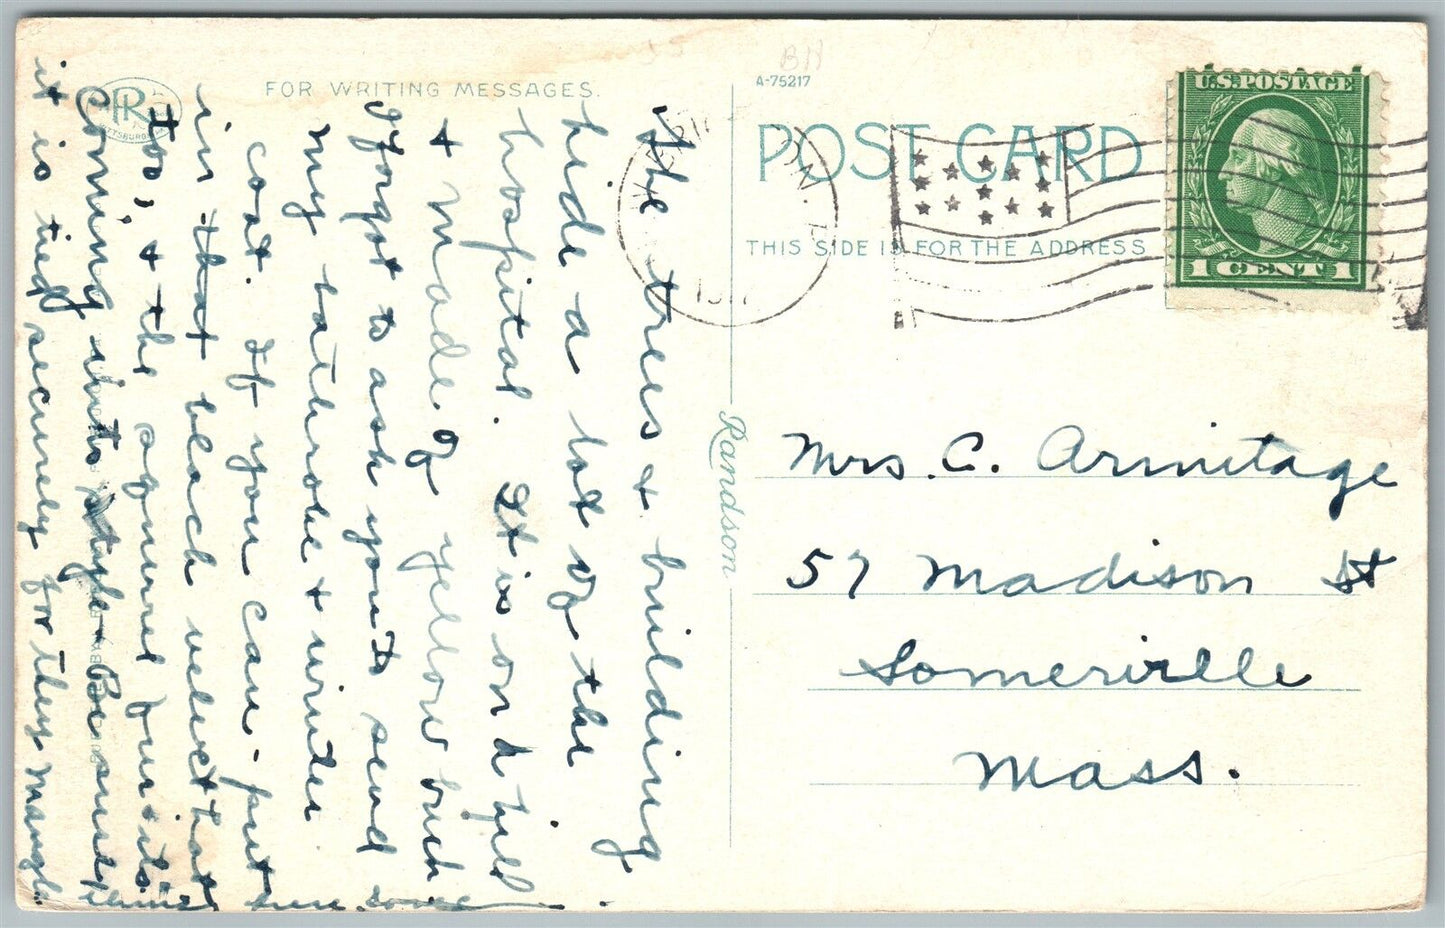 BH
A-75217
FOR WRITING MESSAGES.
POST CARD
THIS SIDE IS FOR THE ADDRESS
U.S. POSTAGE
1 CENT 1
Randson
Mrs. C. Armitage
57 Madison St
Somerville
Mass.
The trees & building
hide a lot of the
hospital. It is on a hill
& made of yellow brick
I forgot to ask you to send
my bathrobe & winter
coat. If you can - put
in that black velvet hat
too, & the squirrel fur its
coming into style. Be sure
it is tied securely for they